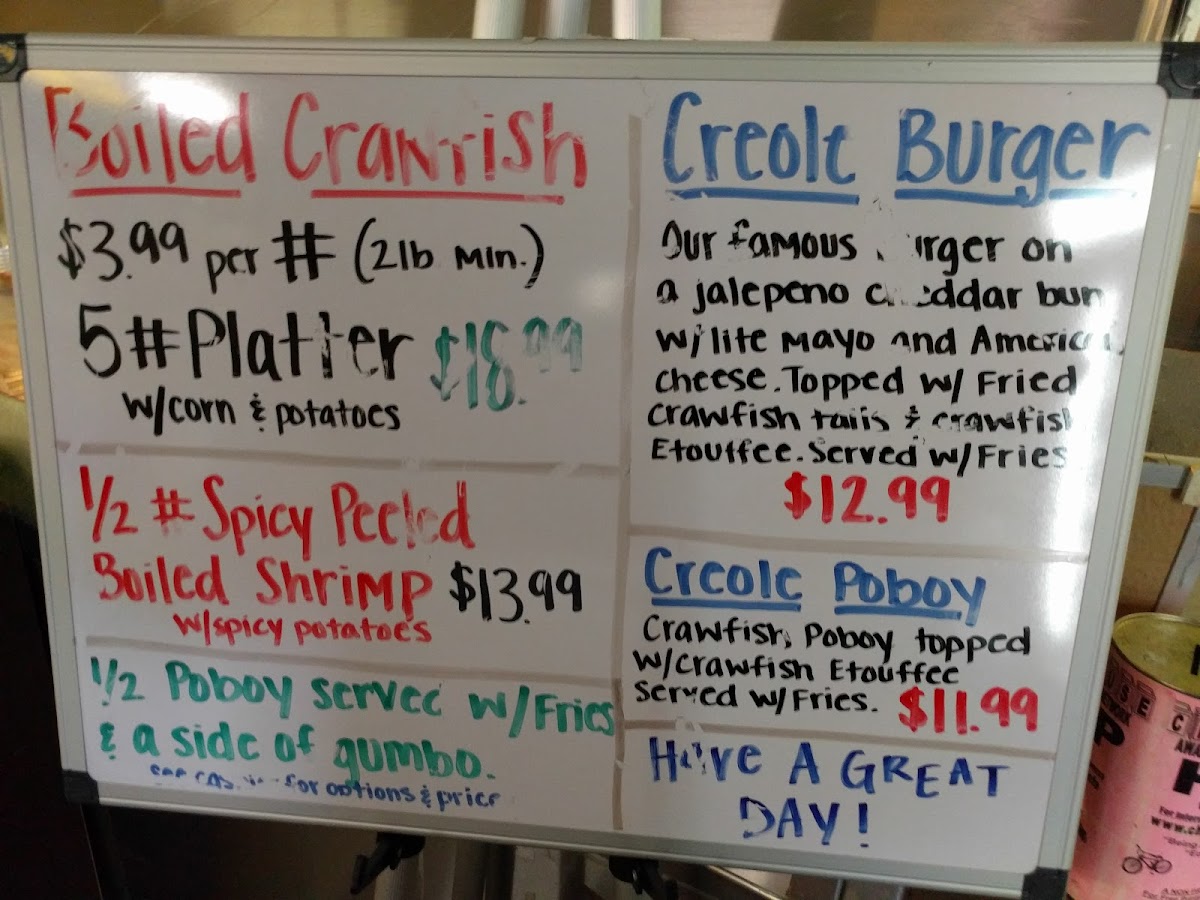 Boiled Crawfish
$3.99 per # (2lb Min.)
5# Platter $18.99
w/corn & potatoes
1/2 # Spicy Peeled
Boiled Shrimp $13.99
w/spicy potatoes
1/2 Poboy served w/Fries
& a side of gumbo.
for options & price
Creole Burger
Our famous Burger on
a jalepeno cheddar bun
w/ lite Mayo and American
cheese. Topped w/ Fried
crawfish tails & crawfish
Etouffee. Served w/Fries
$12.99
Creole Poboy
Crawfish Poboy topped
w/Crawfish Etouffee
served w/Fries. $11.99
HAVE A GREAT
DAY!